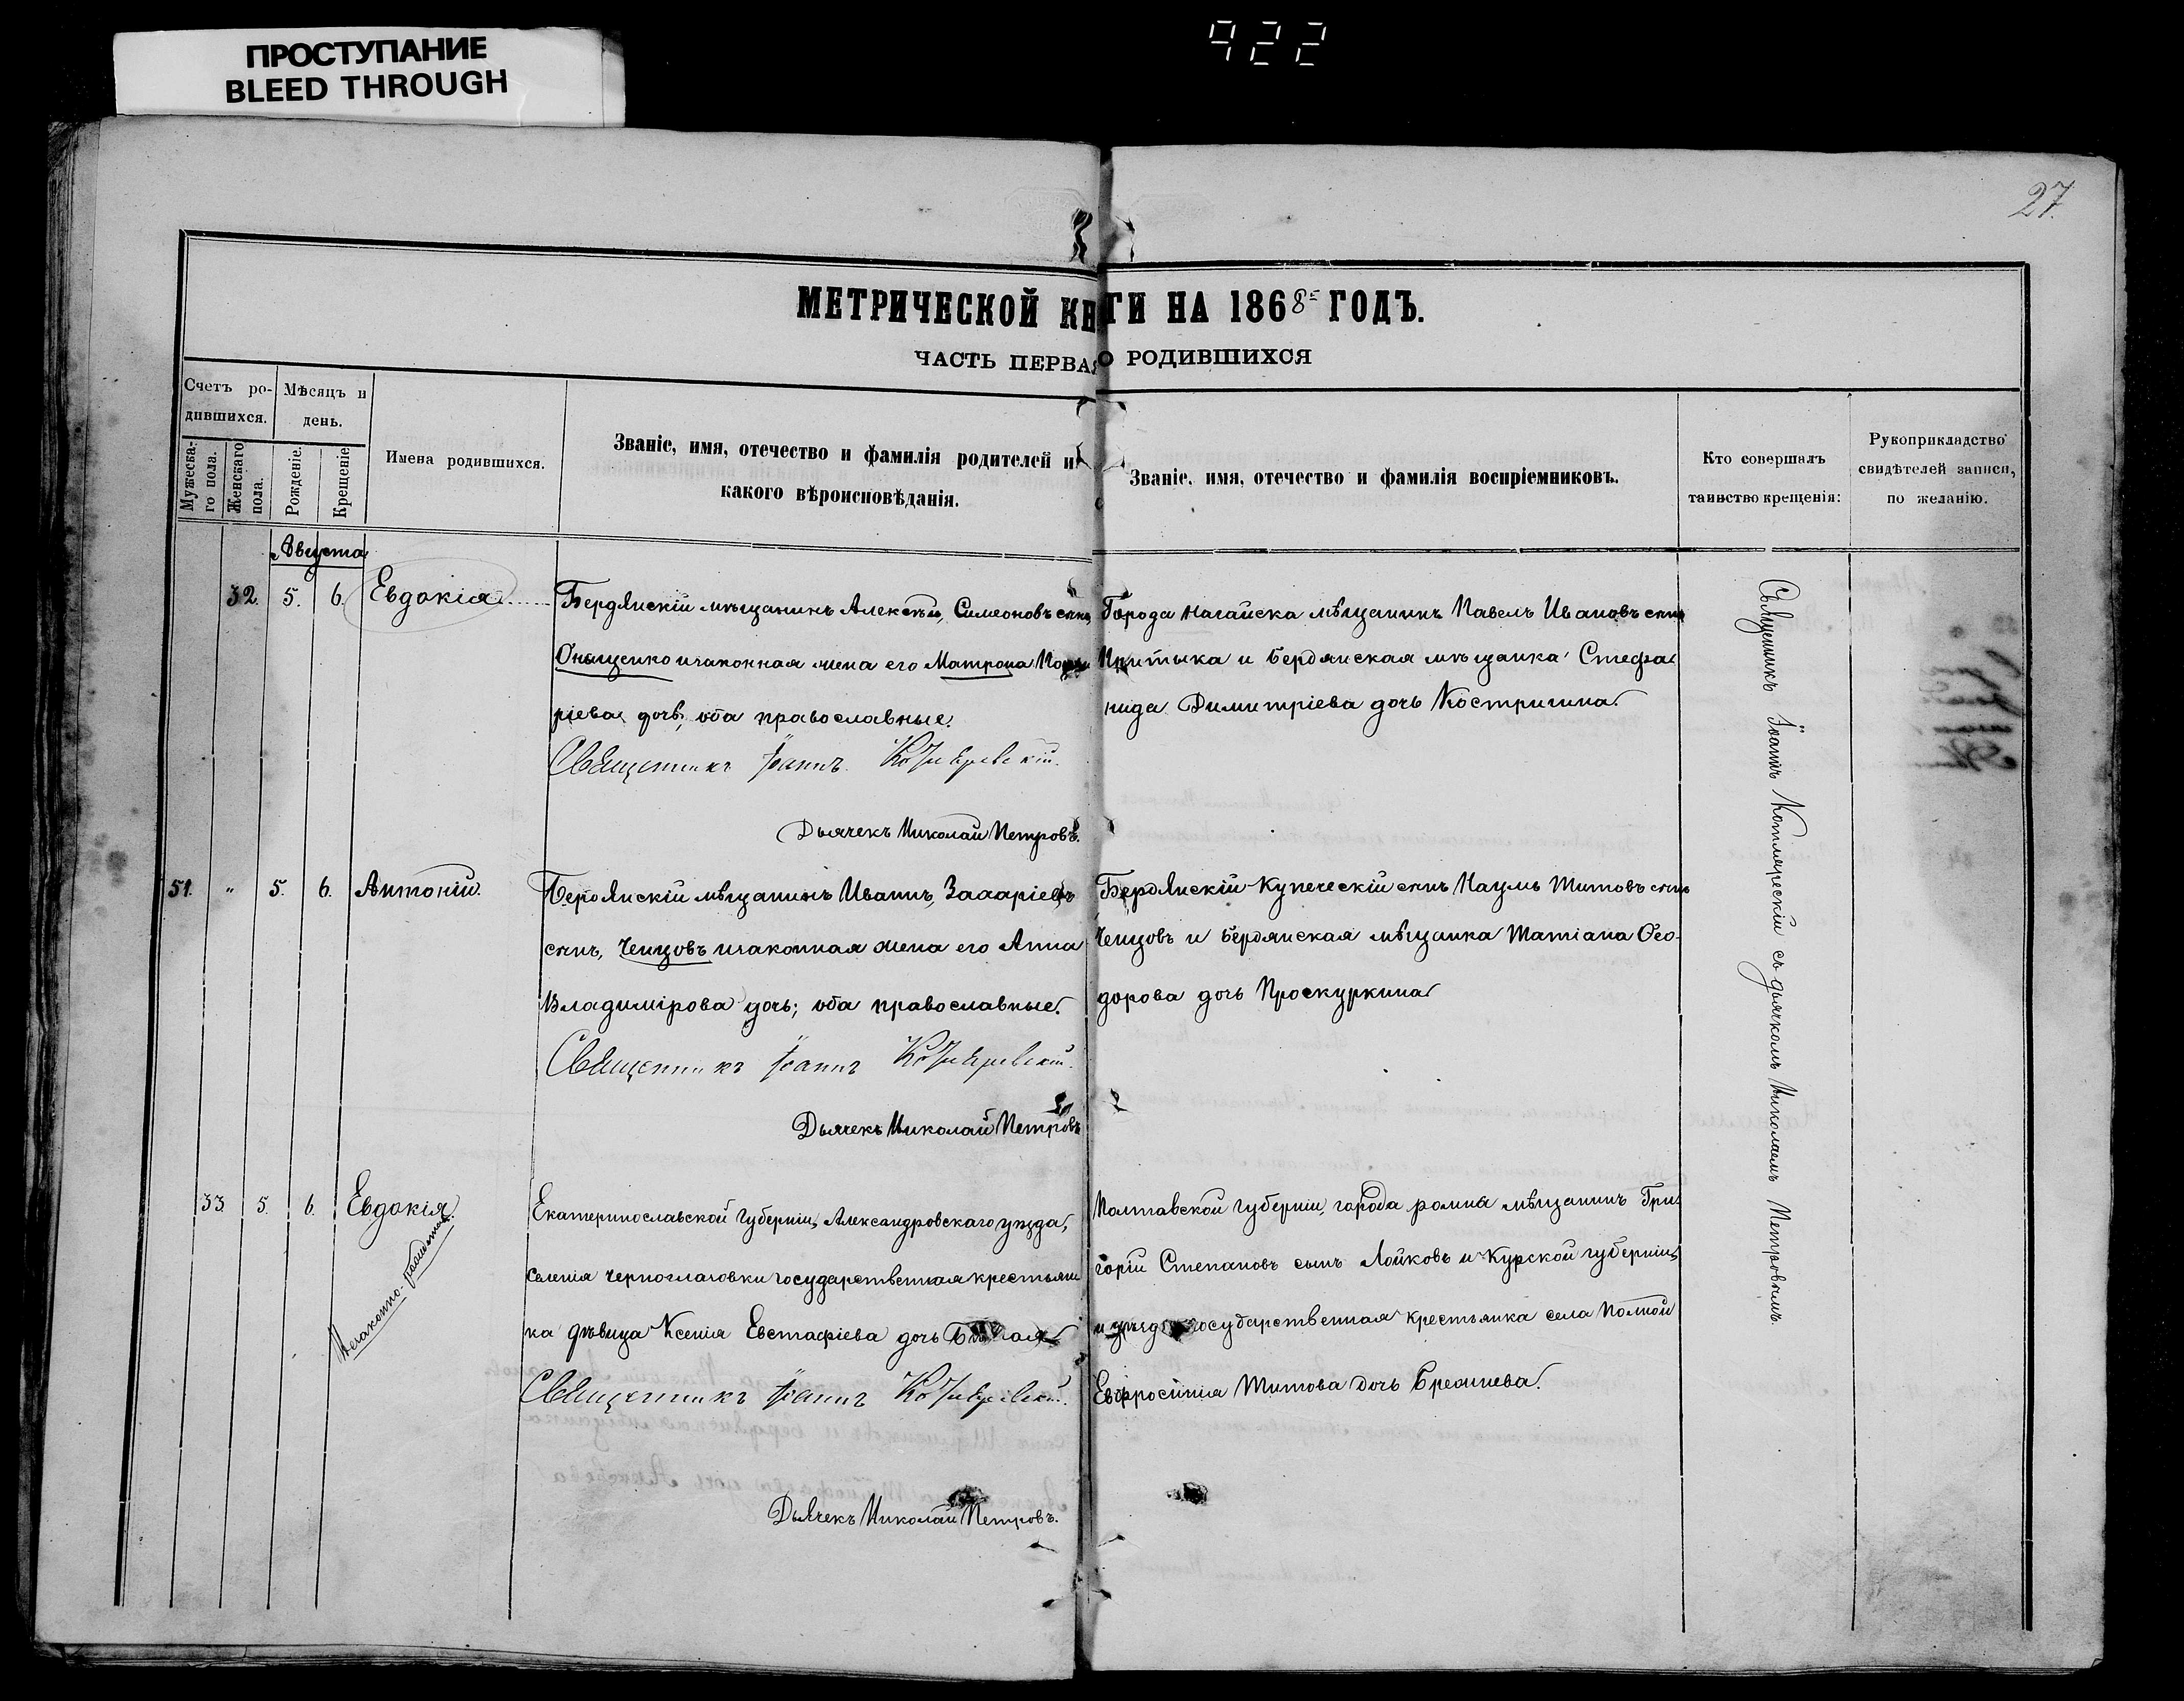 ПРОСТУПАНИЕ
BLEED THROUGH
922
27.
МЕТРИЧЕСКОЙ КНИГИ НА 1868 ГОДЪ.
ЧАСТЬ ПЕРВАЯ О РОДИВШИХСЯ
Счетъ ро-
дившихся.
Мужеска-
го пола.
Женскаго
пола.
Мѣсяцъ и
день.
Рожденіе.
Крещеніе
Имена родившихся.
Званіе, имя, отечество и фамилія родителей и
какого вѣроисповѣданія.
Званіе, имя, отечество и фамилія воспріемниковъ.
Кто совершалъ
таинство крещенія:
Рукоприкладство
свидѣтелей записи,
по желанію.
Августа
32. 5. 6. Евдокія
Бердянскій мѣщанинъ Алексѣй, Симеоновъ сынъ,
Онищенко и законная жена его Матрона
ріева дочь, оба православные.
Священникъ Іоаннъ Котляревскій.
Дьячекъ Николай Петровъ.
Города Нагайска мѣщанинъ Павелъ Ивановъ сынъ
Притыка и Бердянская мѣщанка Стефа
нида Димитріева дочь Костригина
51. " 5. 6. Антоній.
Бердянскій мѣщанинъ Иванъ, Захаріевъ
сынъ, Чепцовъ и законная жена его Анна
Владимірова дочь; оба православные.
Священникъ Іоаннъ Котляревскій.
Дьячекъ Николай Петровъ
Бердянскій Купеческій сынъ Наумъ Титовъ сынъ
Чепцовъ и бердянская мѣщанка Татіана Ѳео-
дорова дочь Проскуркина
33. 5. 6. Евдокія
Незаконно-
Екатеринославской Губерніи, Александровскаго уѣзда,
селенія Черноглазовки государственная крестьян
ка дѣвица Ксенія Евстафіева дочь
Священникъ Іоаннъ Котляревскій.
Дьячекъ Николай Петровъ.
Полтавской губерніи, города ромна мѣщанинъ Гри
горій Степановъ сынъ Лойковъ и Курской губерніи
и уѣзда государственная крестьянка села Полной
Евфросинія Титова дочь
Священникъ Іоаннъ Котляревскій съ дьячкомъ Николаемъ Петровымъ.